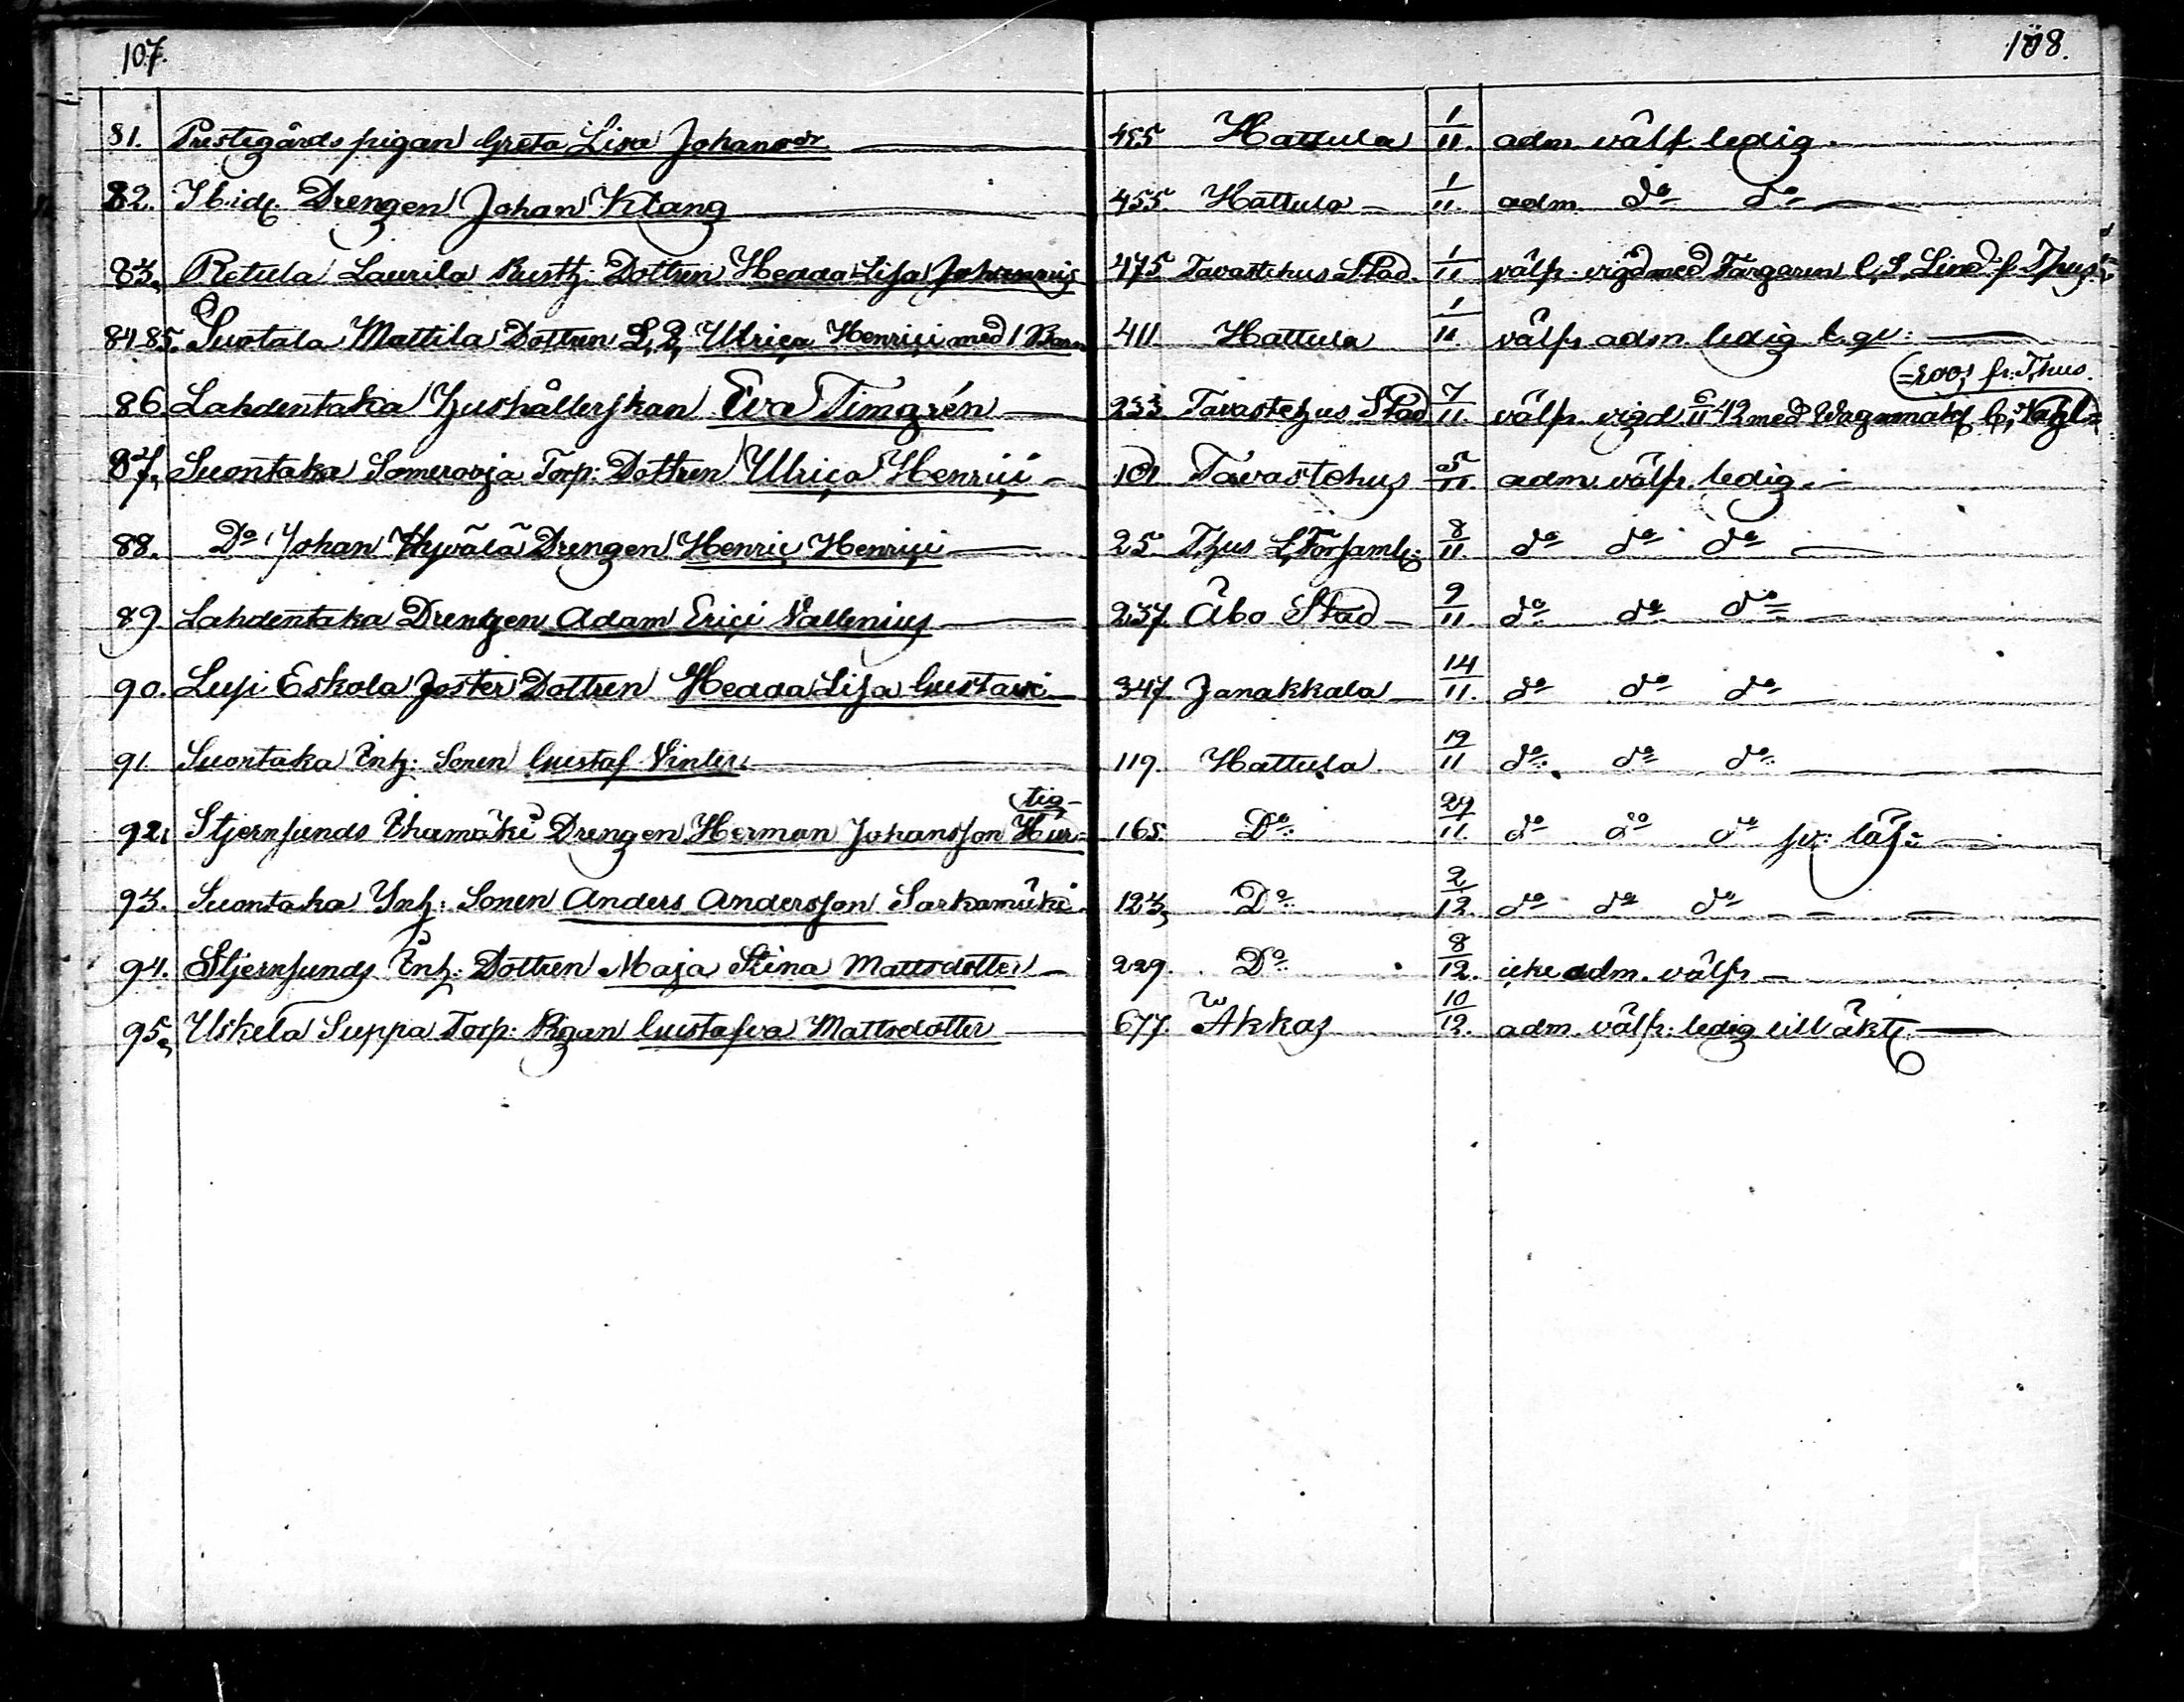 107.
108.
81. Prestegårds pigan Greta Lisa Johansdr 455 Hattula 1/11. adm. välf. ledig.
82. Ibid. Drengen Johan Klang 455. Hattula 1/11. adm. do do
83. Retula Laurila Rusth: Dottren Hedda Lisa Johannis 475 Tavastehus Stad. 1/11 välfr. vigd med Färgaren C. S. Lind f. Thus
84.85. Suotala Mattila Dottren L. Q. Ulrica Henrici med 1 Barn 411 Hattula 1/11 välfr. adm. ledig t. qv:
=roos fr: Thus.
86. Lahdentaka Hushållerskan Eva Timgrén 233 Tavastehus Stad 7/11. välfr. vigd 6/11 42 med Wagnmak C. Nagl=
87. Suontaka Somerooja Torp: Dottren Ulrica Henrici 101 Tavastehus 5/11. adm. välfr. ledig.
88. Do Johan Hyvälä Drengen Henric Henrici 25 T.hus L. Församl: 8/11. do do do
89. Lahdentaka Drengen Adam Erici Vallenius 237 Åbo Stad 9/11 do do do
90. Lusi Eskola Foster Dottren Hedda Lisa Gustavi 347. Janakkala 14/11. do do do
91. Suontaka Inh: Sonen Gustaf Vinter. 119. Hattula 19/11 do do do
tig-
92. Stjernsunds Ihamäki Drengen Herman Johansson Hur= 165. Do 29/11. do do do sv: läs:
93. Suontaka Inh: Sonen Anders Andersson Sarkamäki 123, Do 2/12. do do do
94. Stjernsunds Inh: Dottren Maja Stina Mattsdotter 229. Do 8/12. icke adm. välfr
95. Uskela Suppa Torp: Pigan Gustafva Mattsdotter 677. Akkas 10/12. adm. välfr: ledig till äkt.